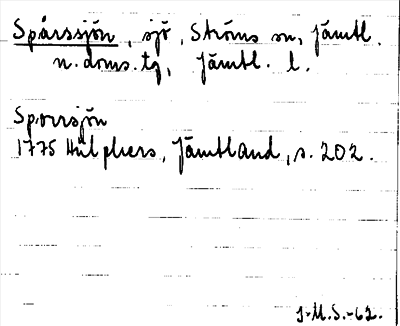 Spårssjön, sjö, Ströms sn, Jämtl.
n. doms. tg, Jämtl. l.
Sporrsjön
1775 Hülphers, Jämtland, s. 202.
J-M.S.-62.